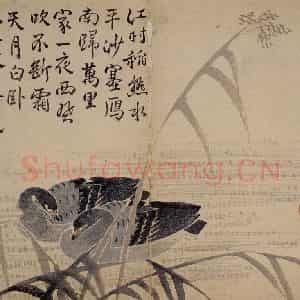 江村稻熟水
平沙塞雁
南歸萬里
家一夜西風
吹不斷霜
天月白卧
Shufawang.CN